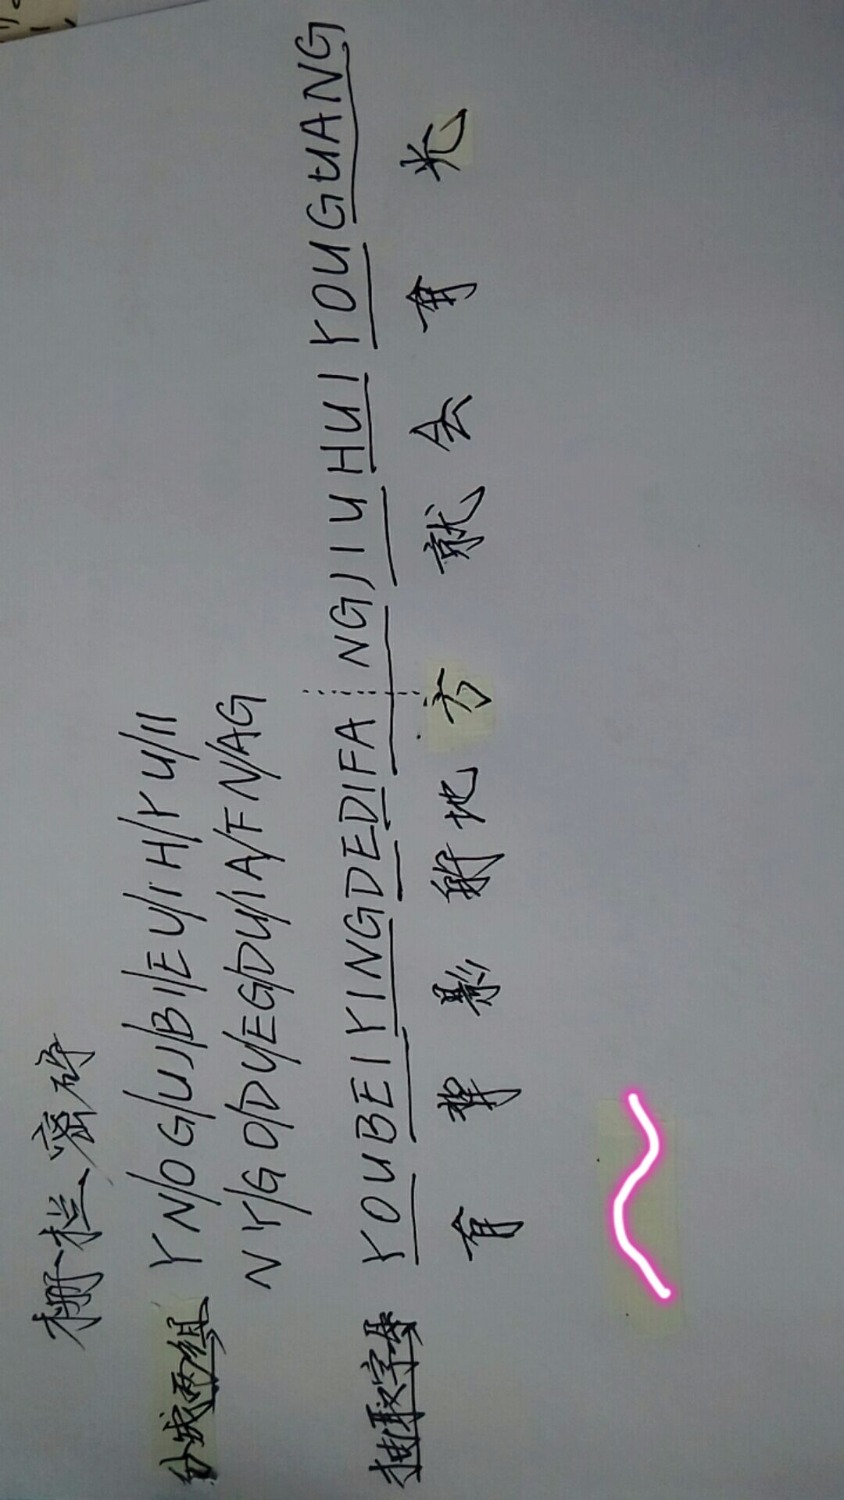 栅栏密码
分成两组 YN/OG/UJ/BI/EU/IH/YU/II
NY/GO/DU/EG/DU/IA/FN/AG
抽取字母 YOUBEIYINGDEDIFA NGJIUHUIYOUGUANG
有背影的地方就会有光